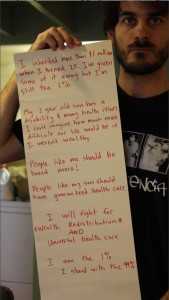 I inherited more than $1 million
when I turned 25. I've given
some of it away but I'm
still the 1%.
My 2 year old son has a
disability & many health issues
I can't imagine how much more
difficult our life would be if
I weren't wealthy
People like me should be
taxed more!
People like my son should
have guaranteed health care
I will fight for
Wealth Redistribution
AND
Universal health care
I am the 1%
I stand with the 99%
ENCIA